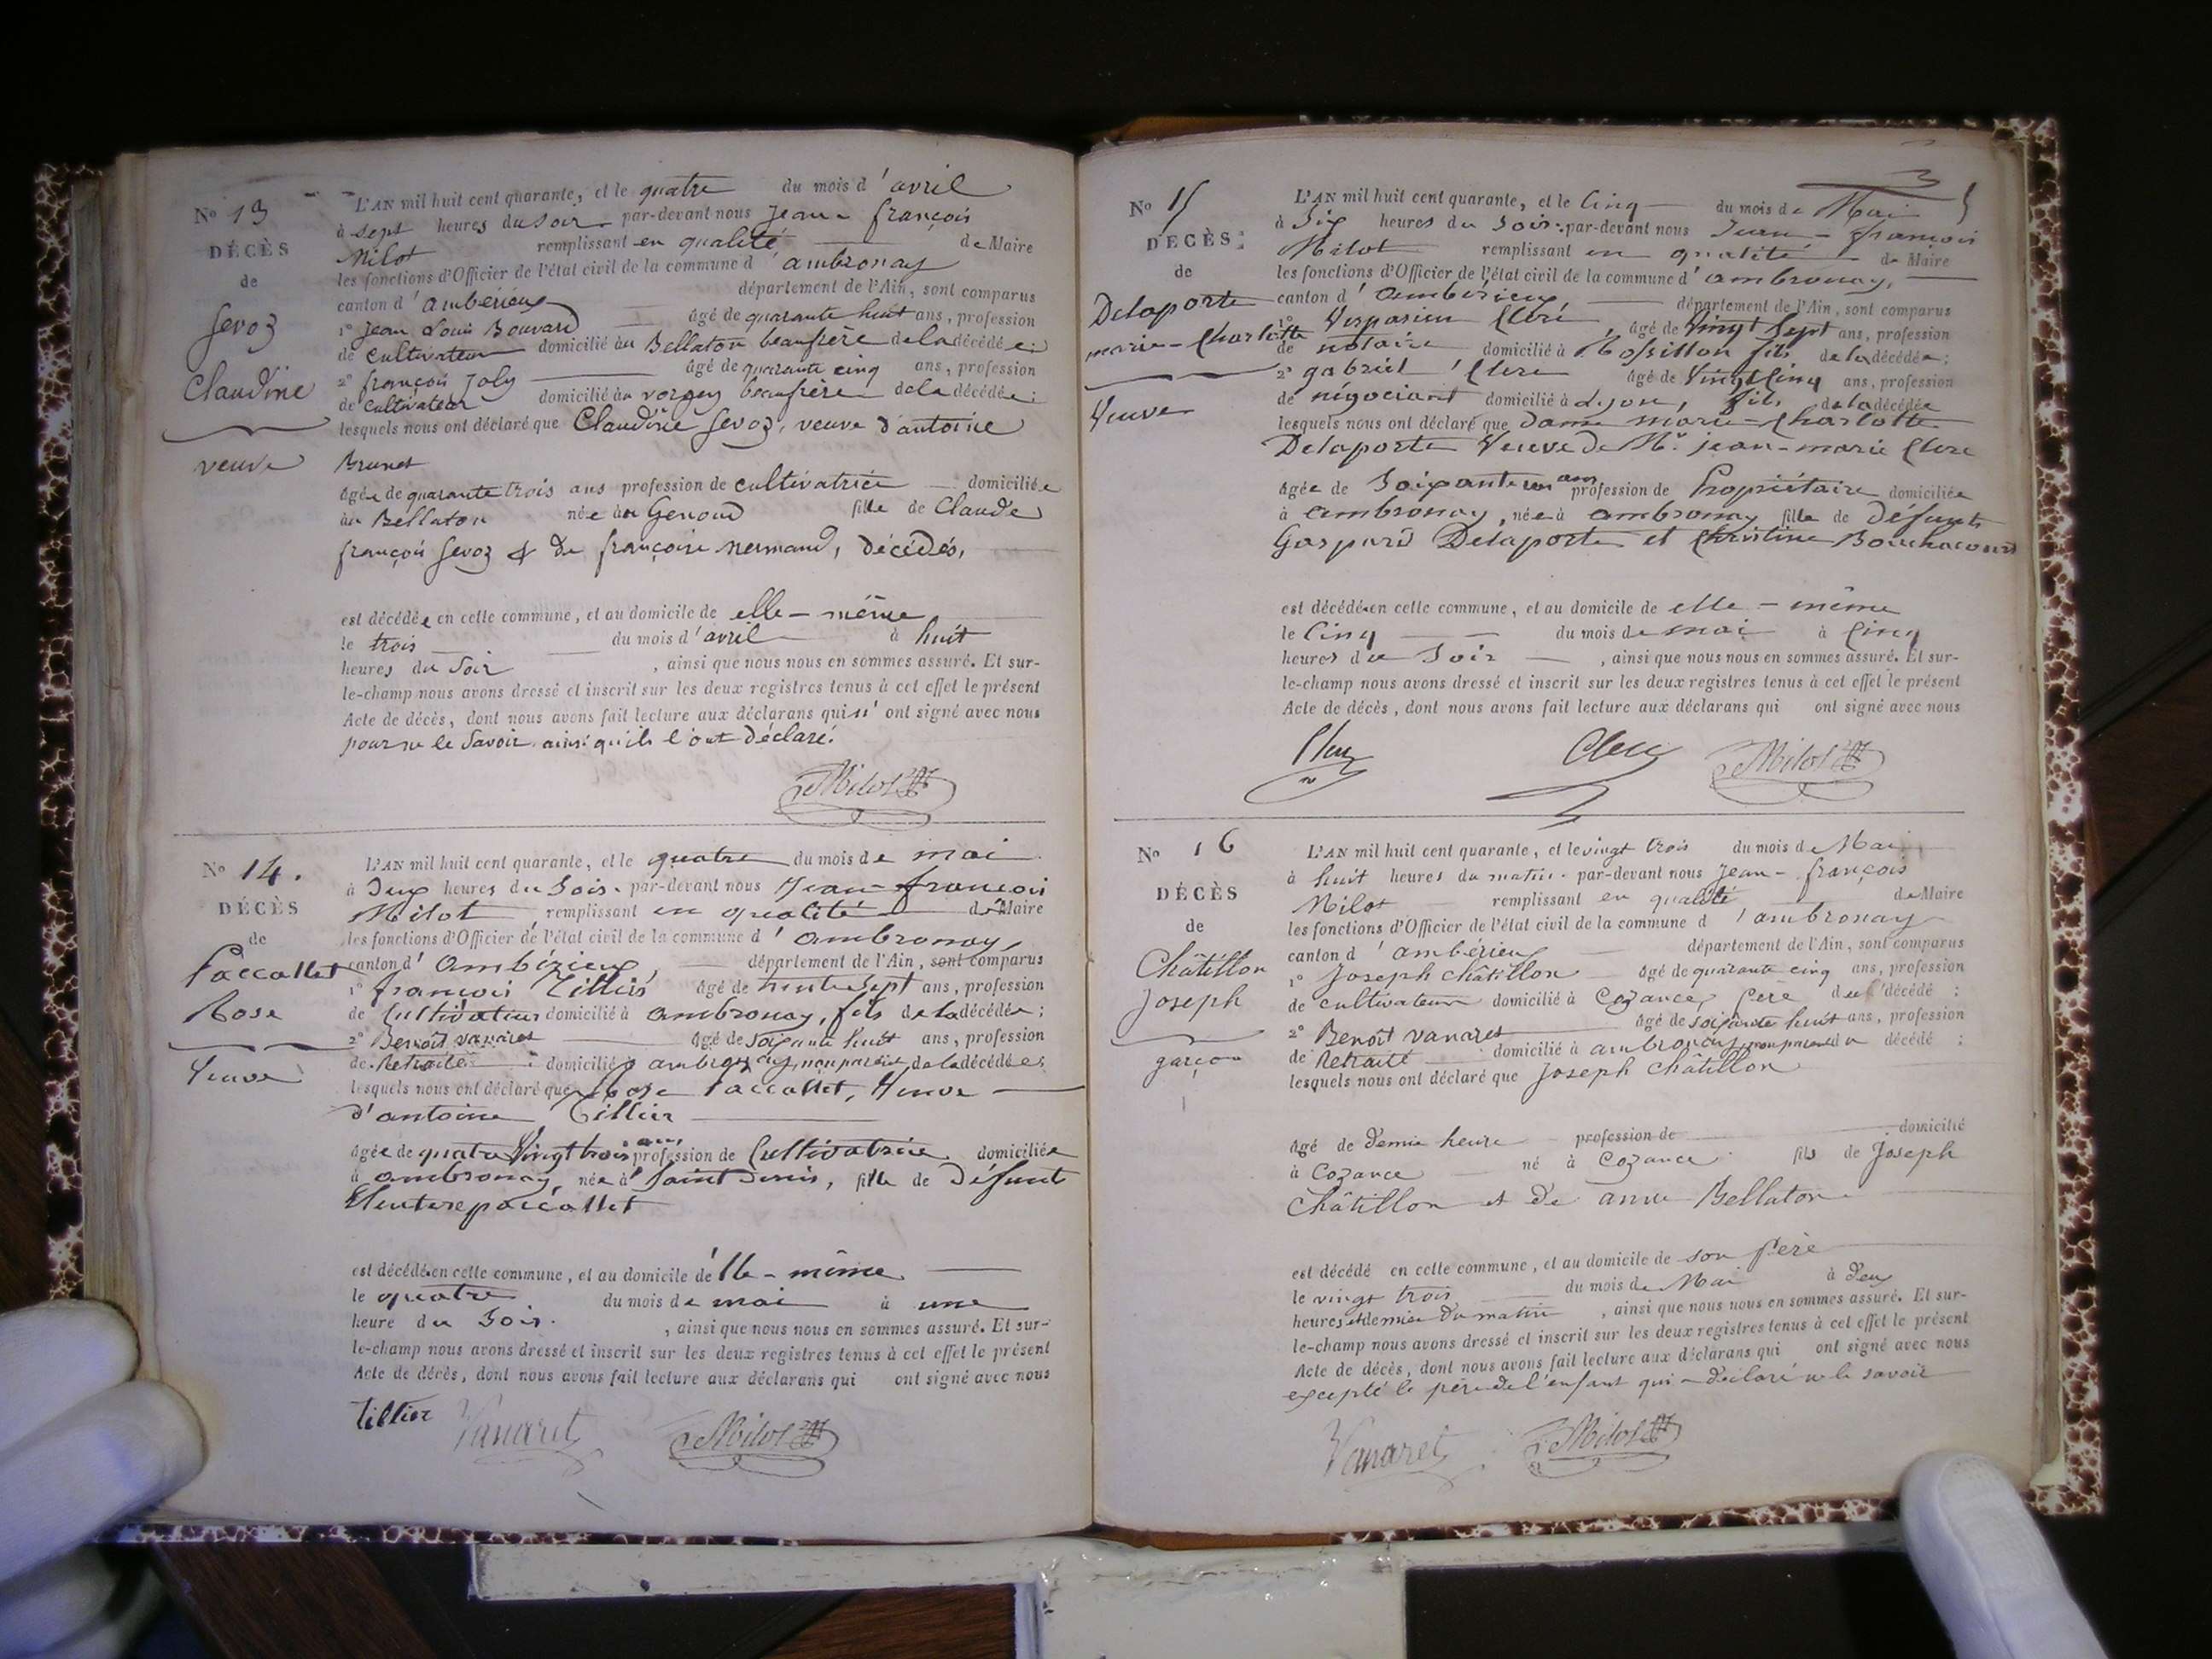 N° 13
DÉCÈS
de
Sevoz
Claudine
veuve
L'AN mil huit cent quarante, et le quatre du mois d'avril
à sept heures du soir par-devant nous Jean-françois
Milot remplissant en qualité de Maire
les fonctions d'Officier de l'état civil de la commune d'ambronay
canton d'ambérieux département de l'Ain, sont comparus
1° Jean Louis Bouvard âgé de quarante huit ans, profession
de cultivateur domicilié au Bellaton beaufrère de la décédée;
2° françois Joly âgé de quarante cinq ans, profession
de cultivateur domicilié au vorgey beaufrère de la décédée;
lesquels nous ont déclaré que Claudine Sevoz, veuve d'antoine
Brunet
âgée de quarante trois ans profession de cultivatrice domiciliée
au Bellaton née au Genoud fille de Claude
françois Sevoz & de françoise nermand, décédés,
est décédée en cette commune, et au domicile de elle-même
le trois du mois d'avril à huit
heures du soir, ainsi que nous nous en sommes assuré. Et sur-
le-champ nous avons dressé et inscrit sur les deux registres tenus à cet effet le présent
Acte de décès, dont nous avons fait lecture aux déclarans qui n'ont signé avec nous
pour ne le savoir ainsi qu'ils l'ont déclaré.
Milot
N° 14.
DÉCÈS
de
Paccallet
Rose
Veuve
L'AN mil huit cent quarante, et le quatre du mois de mai
à Deux heures du Soir par-devant nous Jean-françois
Milot remplissant en qualité de Maire
les fonctions d'Officier de l'état civil de la commune d'ambronay,
canton d'ambérieux, département de l'Ain, sont comparus
1° françois Tillier âgé de trente sept ans, profession
de Cultivateur domicilié à ambronay, fils de la décédée;
2° Benoît vanaret âgé de soixante huit ans, profession
de Retraité domicilié à ambronay, non parent de la décédée;
lesquels nous ont déclaré que Rose Paccallet, Veuve
d'antoine Tillier
âgée de quatre Vingt trois ans profession de Cultivatrice domiciliée
à ambronay, née à Saint Denis, fille de Défunt
Eleutere paccallet
est décédée en cette commune, et au domicile de elle-même
le quatre du mois de mai à une
heure du Soir, ainsi que nous nous en sommes assuré. Et sur-
le-champ nous avons dressé et inscrit sur les deux registres tenus à cet effet le présent
Acte de décès, dont nous avons fait lecture aux déclarans qui ont signé avec nous
Tillier Vanaret Milot
N° 15
DÉCÈS
de
Delaporte
marie-Charlotte
Veuve
L'AN mil huit cent quarante, et le Cinq du mois de Mai
à Six heures du Soir par-devant nous Jean-françois
Milot remplissant en qualité de Maire
les fonctions d'Officier de l'état civil de la commune d'ambronay,
canton d'ambérieux, département de l'Ain, sont comparus
1° Vespasien Clerc, âgé de Vingt Sept ans, profession
de notaire domicilié à Rossillon fils de la décédée;
2° gabriel Clerc âgé de Vingt Cinq ans, profession
de négociant domicilié à Lyon, fils de la décédée
lesquels nous ont déclaré que dame marie-Charlotte
Delaporte Veuve de Mr. jean-marie Clerc
âgée de Soixante un ans profession de Propriétaire domiciliée
à ambronay, née à ambronay fille de Défunts
Gaspard Delaporte et Christine Bouchacourt
est décédée en cette commune, et au domicile de elle-même
le Cinq du mois de mai à Cinq
heures du Soir, ainsi que nous nous en sommes assuré. Et sur-
le-champ nous avons dressé et inscrit sur les deux registres tenus à cet effet le présent
Acte de décès, dont nous avons fait lecture aux déclarans qui ont signé avec nous
Clerc Clerc Milot
N° 16
DÉCÈS
de
Châtillon
Joseph
garçon
L'AN mil huit cent quarante, et le vingt trois du mois de Mai
à huit heures du matin par-devant nous Jean-françois
Milot remplissant en qualité de Maire
les fonctions d'Officier de l'état civil de la commune d'ambronay
canton d'ambérieux département de l'Ain, sont comparus
1° Joseph Châtillon âgé de quarante cinq ans, profession
de cultivateur domicilié à Cozance, père du décédé;
2° Benoît vanaret âgé de soixante huit ans, profession
de Retraité domicilié à ambronay, non parent du décédé;
lesquels nous ont déclaré que Joseph Châtillon
âgé de demie heure profession de domicilié
à Cozance né à Cozance fils de Joseph
Châtillon et de anne Bellaton
est décédé en cette commune, et au domicile de son père
le vingt trois du mois de Mai à deux
heures et demie du matin, ainsi que nous nous en sommes assuré. Et sur-
le-champ nous avons dressé et inscrit sur les deux registres tenus à cet effet le présent
Acte de décès, dont nous avons fait lecture aux déclarans qui ont signé avec nous
excepté le père de l'enfant qui a déclaré ne le savoir
Vanaret Milot